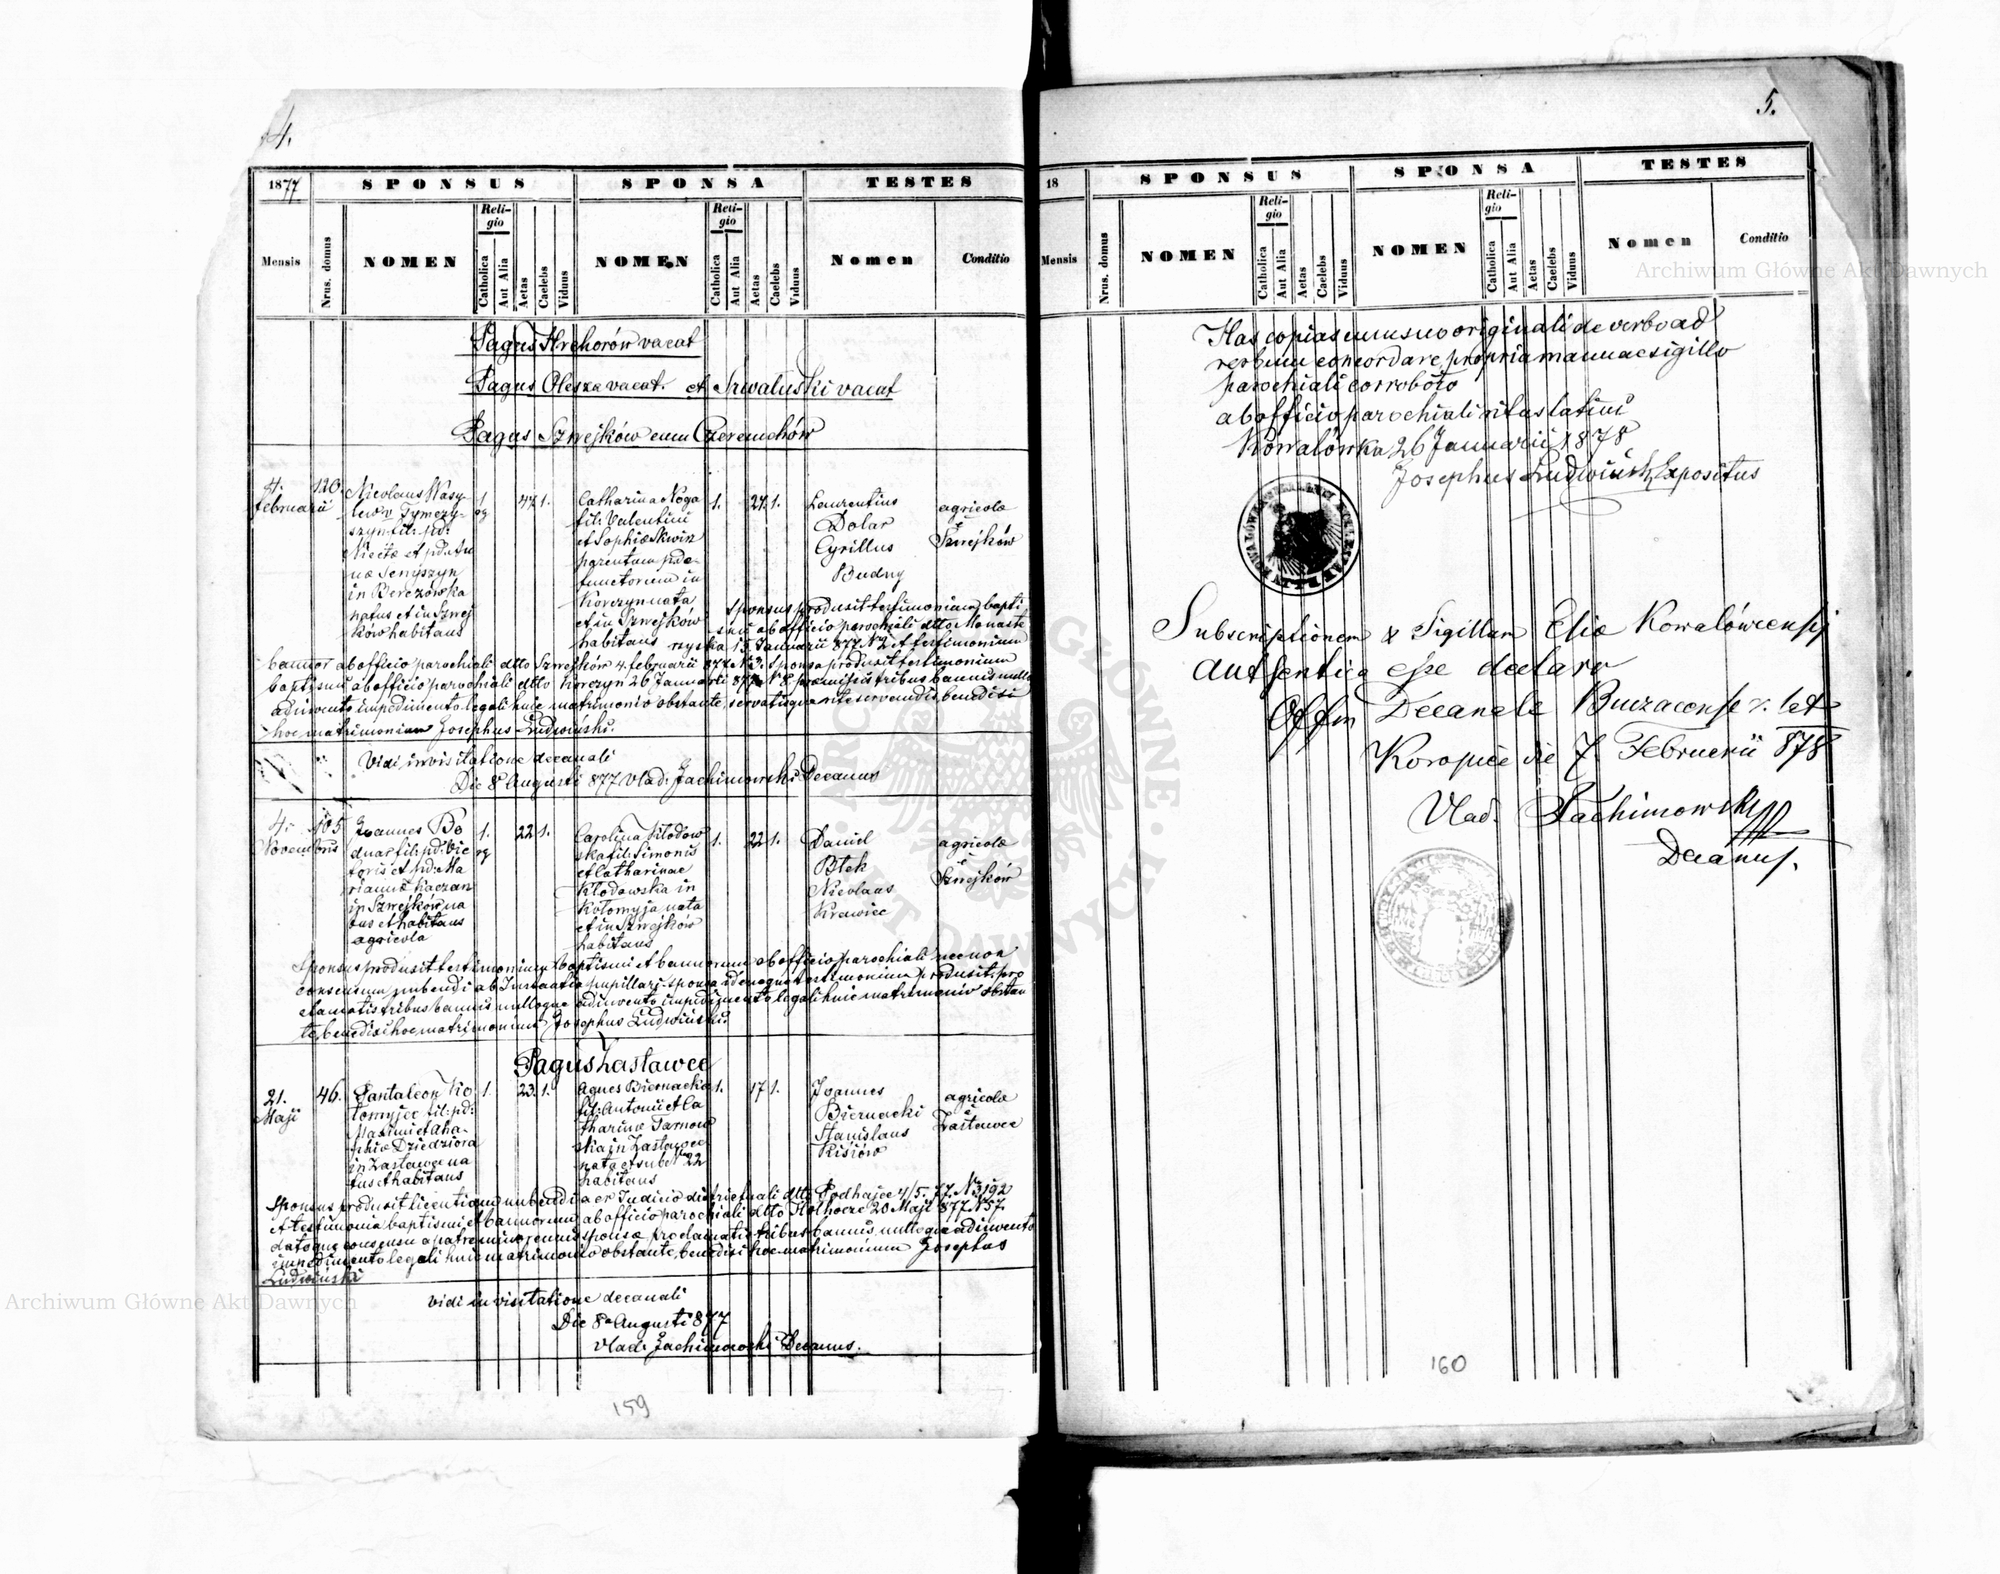 4.
1877
SPONSUS
SPONSA
TESTES
Mensis
Nrus. domus
NOMEN
Religio
Catholica
Aut Alia
Aetas
Caelebs
Viduus
NOMEN
Religio
Catholica
Aut Alia
Aetas
Caelebs
Viduus
Nomen
Conditio
Pagus Hrehorów vacat
Pagus Olesza vacat. et Srwaluski vacat
Pagus Szwejków cum Czeremchów
4. Februarii
120
Nicolaus Wasy-
lew v Tymczy-
szyn fil: pd:
in Berezówka
natus et in Szwej
ków habitans
1.
rg
47
1.
Catharina Noga
fil: Valentini
et Sophiæ Skwir
parentum pde-
functorum in
Korczyn nata
et in Szwejków
habitans
1.
27
1.
Laurentius
Dolar
Cyrillus
Budny
agricolæ
Szwejków
Sponsus produxit testimonium bapti
smi ab officio parochiali dtto Monaste
rzyska 15 Januarii 877 N 2 et testimonium
bannor ab officio parochiali dtto Szwejków 4. februarii 877 Sponsa produxit testimonium
baptismi ab officio parochiali dtto Korczyn 26 Januarii 877 N 8. præmissis tribus bannis nullo
adinvento impedimento legali huic matrimonio obstante, servatisque rite servandis, benedixi
hoc matrimonium Josephus Ludwiński.
Vidi in visitatione decanali
Die 8 Augusti 877. Vlad. Jachimowski Decanus
4. Novembris
105
Joannes Bo
dnar fil: pd: Vic
toris et pd: Ma
riannæ Kaczan
in Szwejków na
tus et habitans
agricola
1.
rg
22
1.
Carolina Kłodow
ska fil: Simonis
et Catharinae
Kłodowska in
Kołomyja nata
et in Szwejków
habitans
1.
22
1.
Daniel
Błek
Nicolaus
Krawiec
agricolæ
Szwejków
Sponsus produxit testimonium baptismi et bannorum ab officio parochiali necnon
consensum nubendi ab Instantia pupillari, sponsa idemque testimonium produxit: pro
clamatis tribus bannis nulloque adinvento impedimento legali huic matrimonio obstan
te, benedixi hoc matrimonium Josephus Ludwiński.
Pagus Zastawce
21. Maji
46.
Pantaleon Ko
łomyjec fil: pd:
Maximi et Aha-
phiæ Dziedziora
in Zastawce na
tus et habitans
1.
23.
1.
Agnes Biernacka
fil: Antonii et Ca
tharinæ Tarnow
ska in Zastawce
nata et sub N 22
habitans
1.
17
1.
Joannes
Biernacki
Stanislaus
Kisiów
agricolæ
Zastawce
Sponsus produxit licentiam nubendi a er Judicio districtuali dtto Podhajce 4/5. 77. N 3192
et testimonia baptismi et bannorum ab officio parochiali dtto Hołhocze 20 Maji 877 N 57.
datoque consensu a patre minorennis sponsæ, proclamatis tribus bannis, nulloque adinvento
impedimento legali huic matrimonio obstante, benedixi hoc matrimonium Josephus
Ludwiński
Vidi in visitatione decanali
Die 8 Augusti 877
Vlad. Jachimowski Decanus.
159
5.
18
SPONSUS
SPONSA
TESTES
Mensis
Nrus. domus
NOMEN
Religio
Catholica
Aut Alia
Aetas
Caelebs
Viduus
NOMEN
Religio
Catholica
Aut Alia
Aetas
Caelebs
Viduus
Nomen
Conditio
Has copias cum suo originali de verbo ad
verbum concordare, propria manu ac sigillo
parochiali corroboro
ab officio parochiali ritus latini
Kowalówka 26 Januarii 1878
Josephus Ludwiński Expositus
Subscriptionem & Sigillum Eliæ Kowalówcensis
authentica esse declaro
Off Decanale Buczacense r. lat
Koropiec die 7. Februarii 878
Vlad. Jachimowski
Decanus.
160
Archiwum Główne Akt Dawnych
Archiwum Główne Akt Dawnych